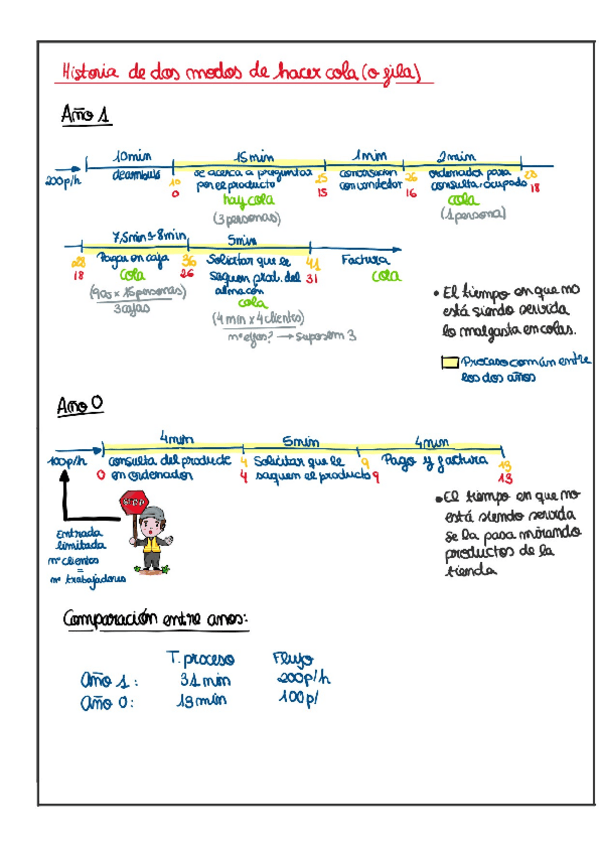 Historia de dos modos de hacer cola (o fila)
Año 1
10min 15min 1min 2min
200p/h deambula 10 se acerca a preguntar 25 conversación 26 ordenador para 28
0 por el producto 15 con vendedor 16 consulta, ocupado 18
hay cola cola
(3 personas) (1 persona)
7,5min → 8min 5min
28 Pagar en caja 36 Solicitar que le 41 Factura
18 cola 26 saquen prod. del 31 cola
(90s x 15 personas) almacén
3 cajas cola
(4 min x 4 clientes)
→ suposem 3
• El tiempo en que no
está siendo servida
lo malgasta en colas.
Proceso común entre
los dos años
Año 0
4min 5min 4min
100p/h consulta del producte 4 Solicitar que le 9 Pago y factura 13
0 en ordenador 4 saquen el producto 9 13
STOP
Entrada
limitada
nº clientes
=
nº trabajadores
• El tiempo en que no
está siendo servida
se la pasa mirando
productos de la
tienda
Comparación entre anos:
T. proceso Flujo
Año 1: 31 min 200p/h
Año 0: 13 min 100p/